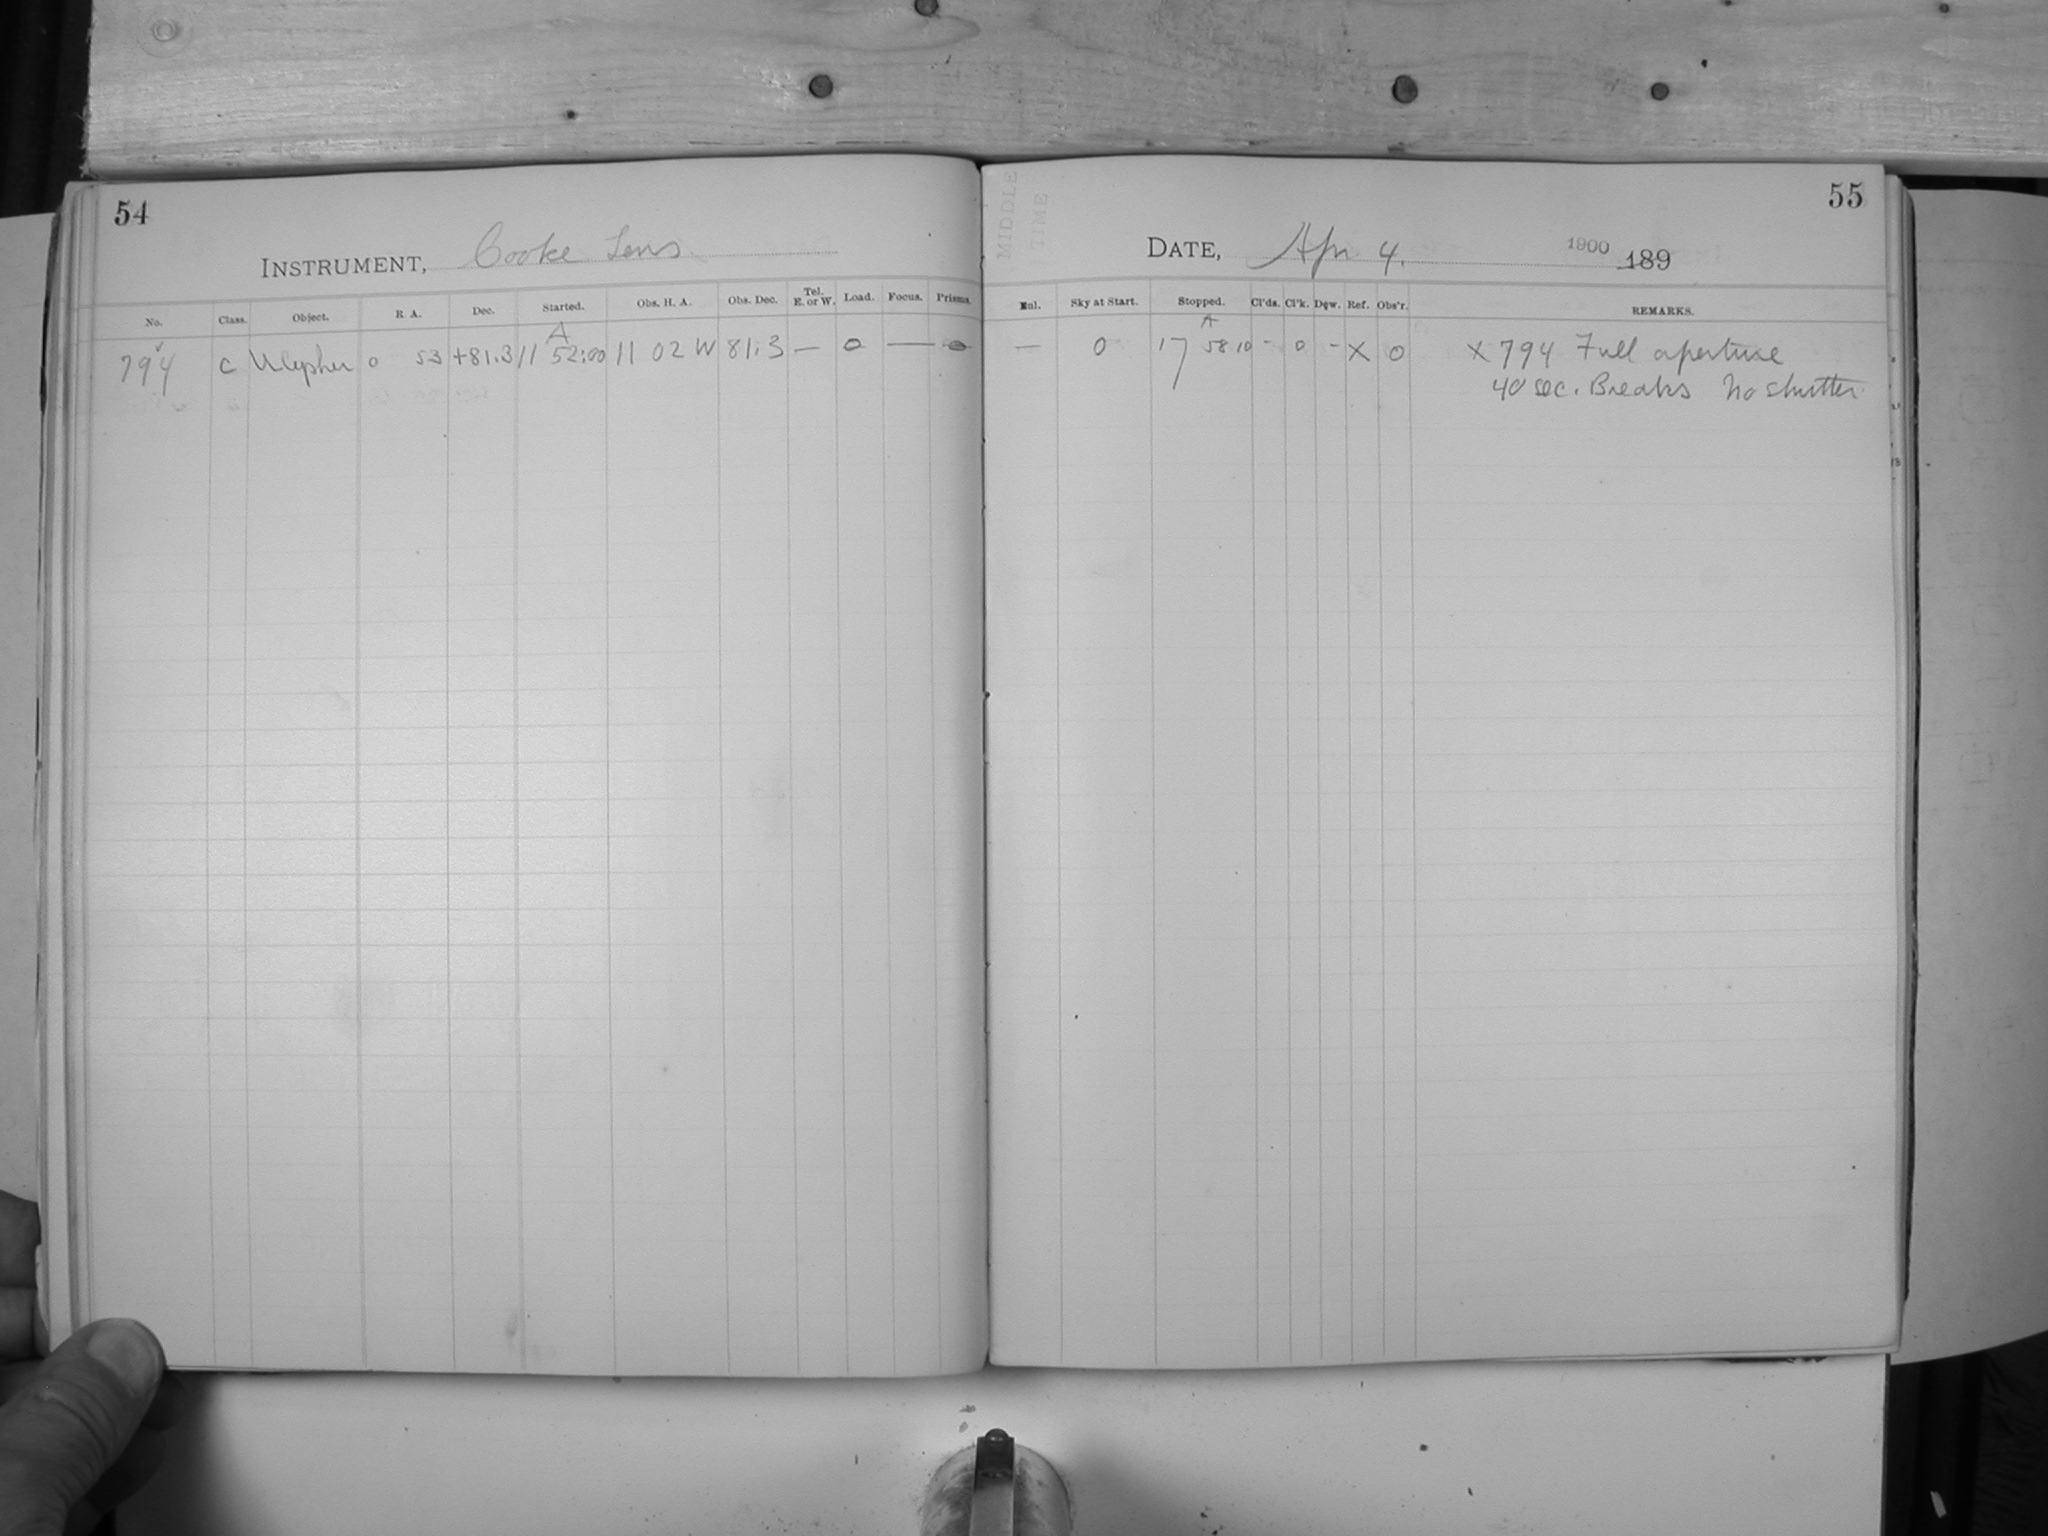 54
INSTRUMENT, Cooke Lens
No. Class. Object. R A. Dec. Started. Obs. H. A. Obs. Dec. Tel. E. or W. Load. Focus. Prisms.
A
794 C 0 53 +81.3 11 52:00 11 02 W 81.3 — 0 — 0
MIDDLE
TIME
55
DATE, Apr 4. 1900 189
Enl. Sky at Start. Stopped. Cl'ds. Cl'k. Dew. Ref. Obs'r. REMARKS.
A
— 0 17 58 10 - 0 - X O X 794 Full aperture
40 sec. Breaks No shutter